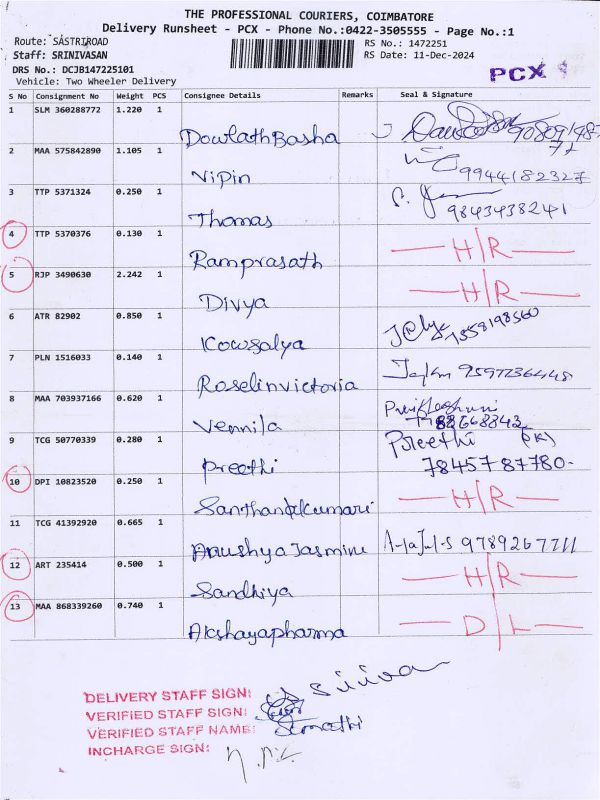 THE PROFESSIONAL COURIERS, COIMBATORE
Delivery Runsheet - PCX - Phone No.:0422-3505555 - Page No.:1
Route: SASTRIROAD RS No.: 1472251
Staff: SRINIVASAN RS Date: 11-Dec-2024
DRS No.: DCJB147225101 PCX
Vehicle: Two Wheeler Delivery
S No Consignment No Weight PCS Consignee Details Remarks Seal & Signature
1 SLM 360288772 1.220 1 DowlathBasha
2 MAA 575842890 1.105 1 Vipin 9944182327
3 TTP 5371324 0.250 1 Thomas 9843438241
4 TTP 5370376 0.130 1 Ramprasath H/R
5 RJP 3490630 2.242 1 Divya H/R
6 ATR 82902 0.850 1 Kowsalya 7558198560
7 PLN 1516033 0.140 1 Roselinvictoria 9597236448
8 MAA 703937166 0.620 1 Vennila
9 TCG 50770339 0.280 1 Preethi Preethi
7845787780.
10 DPI 10823520 0.250 1 H/R
11 TCG 41392920 0.665 1 Anushya Jasmine 9789267711
12 ART 235414 0.500 1 Sandhiya H/R
13 MAA 868339260 0.740 1 Akshayapharma D/L
DELIVERY STAFF SIGN:
VERIFIED STAFF SIGN:
VERIFIED STAFF NAME:
INCHARGE SIGN: